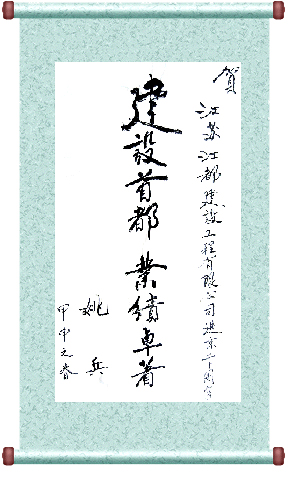 贺
江苏江都建设工程有限公司进京二十周年
建設首都 業績卓著
姚兵
甲申之春